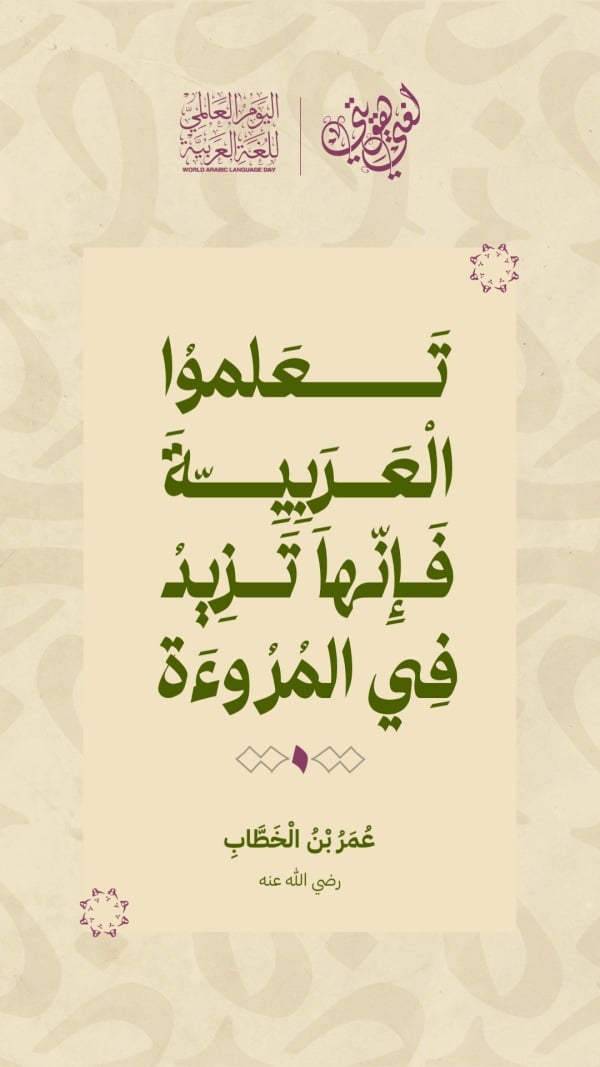 لغتي هويتي
اليَوم العَالمي
لِلغَة العَرَبيَّة
WORLD ARABIC LANGUAGE DAY
تَـــعَلموُا
الْعَـرَبِيِـــّةَ
فَـإِنّهاَ تَـزِيدُ
فِي المُرُوءَة
عُمَرُ بْنُ الْخَطَّابِ
رضي الله عنه